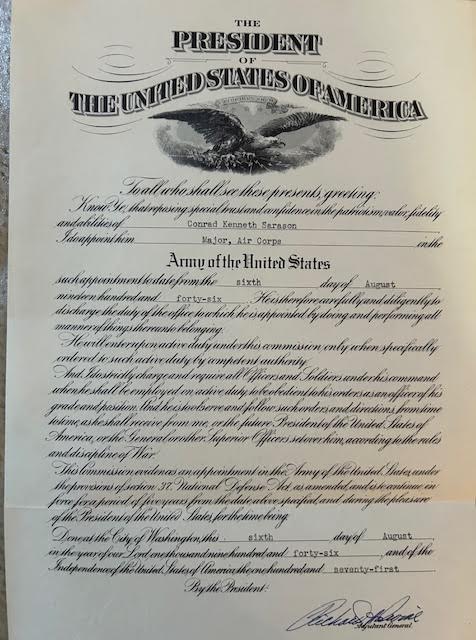 THE
PRESIDENT
OF
THE UNITED STATES OF AMERICA
To all who shall see these presents, greeting:
Know Ye, that reposing special trust and confidence in the patriotism, valor, fidelity
and abilities of Conrad Kenneth Sarason
I do appoint him Major, Air Corps in the
Army of the United States
such appointment to date from the sixth day of August
nineteen hundred and forty-six. He is therefore carefully and diligently to
discharge the duty of the office to which he is appointed by doing and performing all
manner of things thereunto belonging.
He will enter upon active duty under this commission only when specifically
ordered to such active duty by competent authority.
And I do strictly charge and require all Officers and Soldiers under his command
when he shall be employed on active duty to be obedient to his orders as an officer of his
grade and position. And he is to observe and follow such orders and directions, from time
to time, as he shall receive from me, or the future President of the United States of
America, or the General or other Superior Officers set over him, according to the rules
and discipline of War.
This Commission evidences an appointment in the Army of the United States, under
the provisions of section 37, National Defense Act, as amended, and is to continue in
force for a period of five years from the date above specified, and during the pleasure
of the President of the United States, for the time being.
Done at the City of Washington, this sixth day of August
in the year of our Lord one thousand nine hundred and forty-six, and of the
Independence of the United States of America the one hundred and seventy-first
By the President:
Adjutant General.